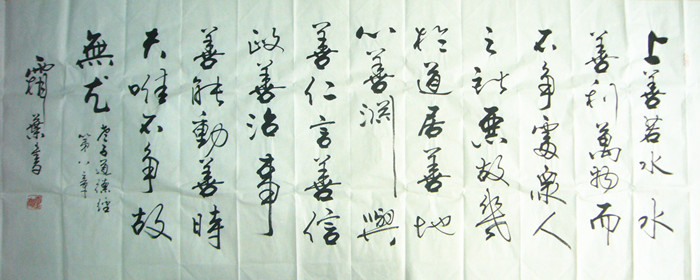 上善若水水
善利萬物而
不争處衆人
之所惡故幾
於道居善地
心善淵與
善仁言善信
政善治事
善能動善時
夫唯不争故
無尤
老子道德經
第八章
霜葉書